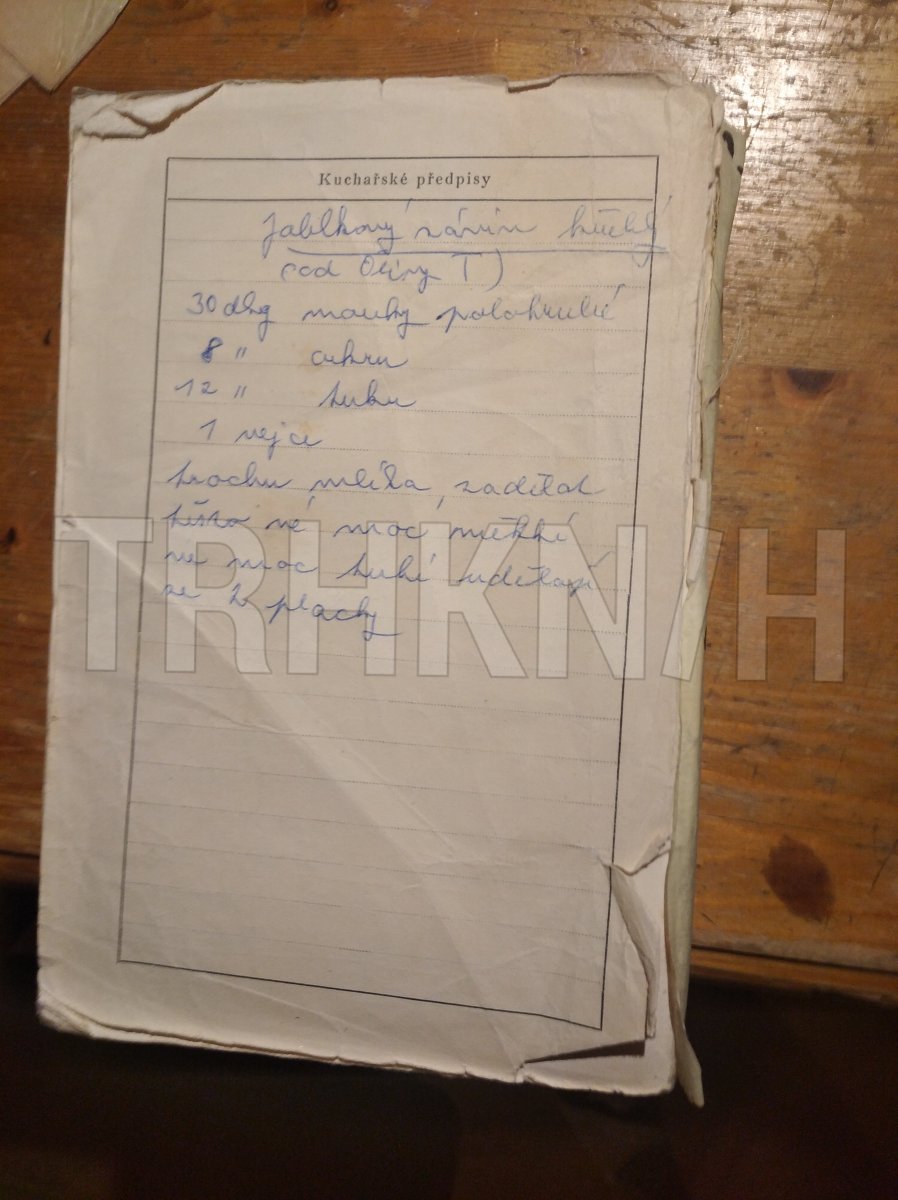 Kuchařské předpisy
Jablkový závin křehký
(od Oliny T)
30 dkg mouky polohrubé
8 " cukru
12 " tuku
1 vejce
trochu mlíka, zadělat
těsto né moc měkké
ne moc tuhé udělají
se 2 plachy
TRHKNIH